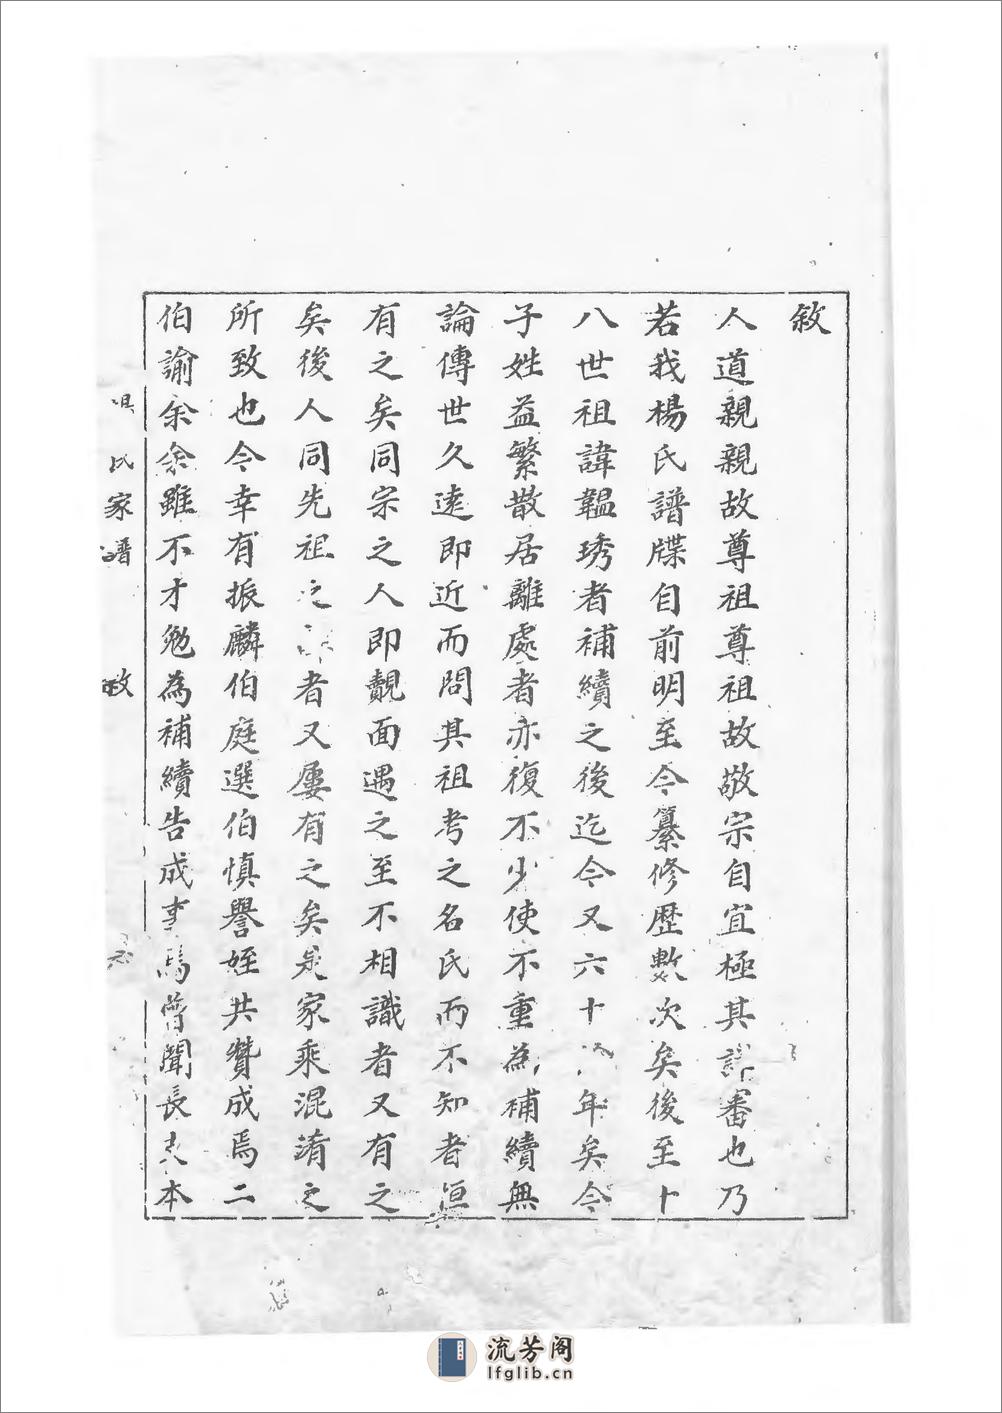 敘
人道親親故尊祖尊祖故敬宗自宜極其審也乃
若我楊氏譜牒自前明至今纂修歷數次矣後至十
八世祖諱韞琇者補續之後迄今又六十年矣今
子姓益繁散居離處者亦復不少使不重為補續無
論傳世久遠即近而問其祖考之名氏而不知者恒
有之矣同宗之人即覿面遇之至不相識者又有之
矣後人同先祖之者又屢有之矣是家乘混淆之
所致也今幸有振麟伯庭選伯慎譽姪共贊成焉二
伯諭余余雖不才勉為補續告成事焉曾聞長老本
氏家譜
敘
流芳阁
lfglib.cn